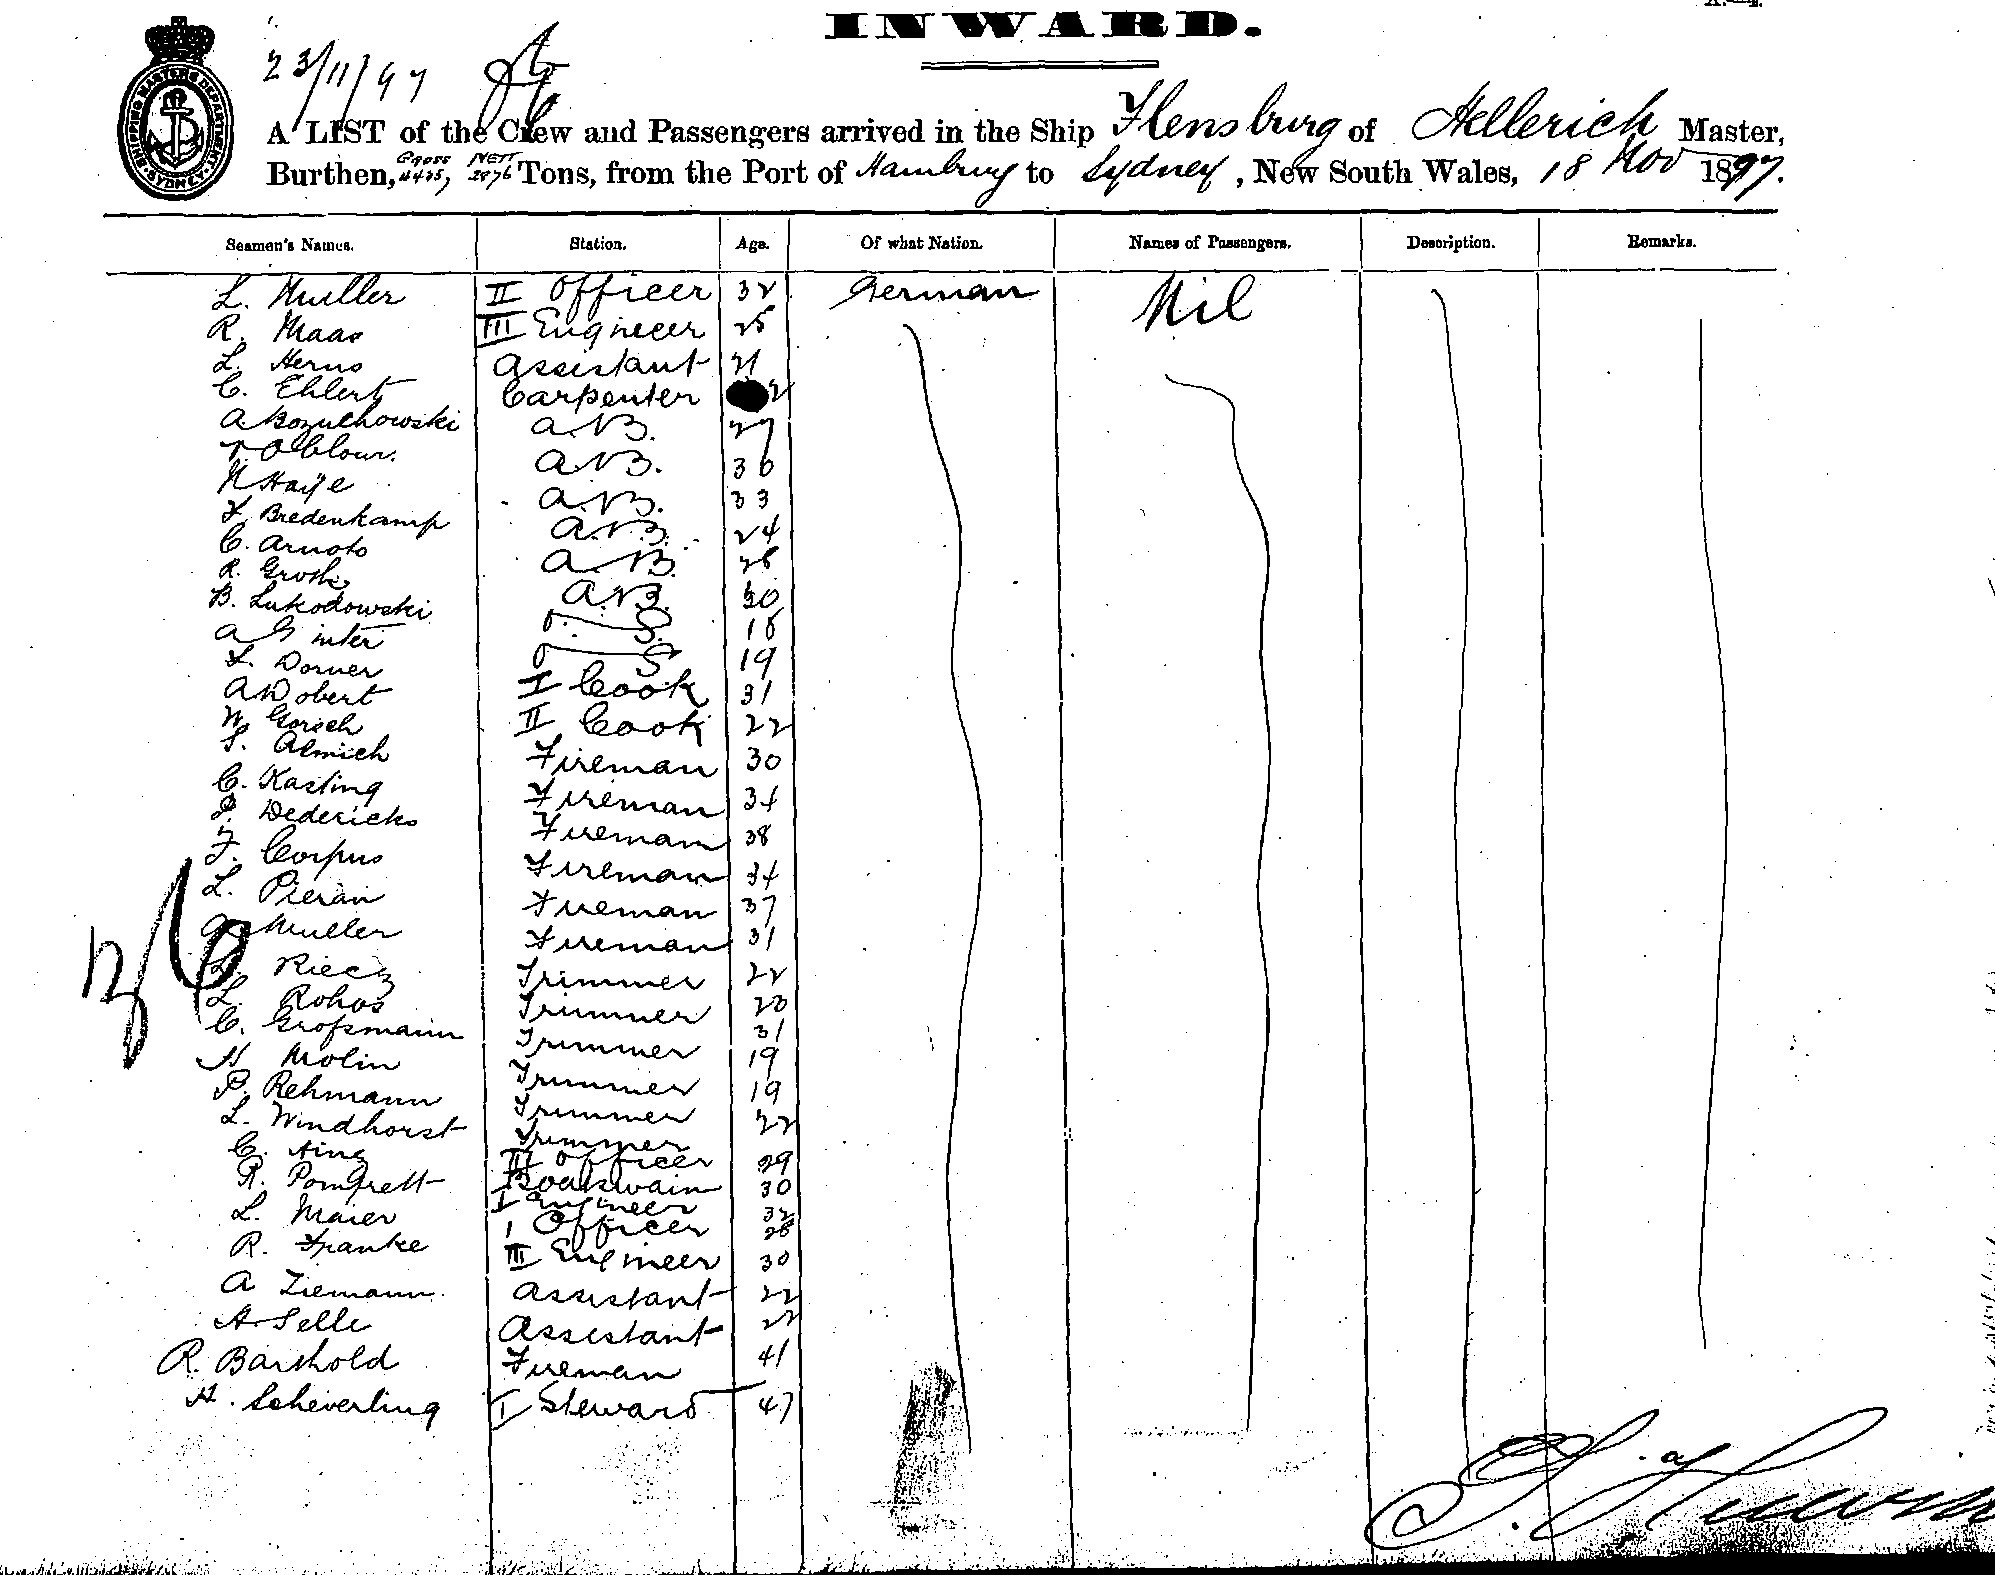 INWARD.
23/11/97
SHIPPING MASTERS DEPARTMENT SYDNEY
A LIST of the Crew and Passengers arrived in the Ship Flensburg of Hellerich Master,
Burthen, Gross Nett 2876 Tons, from the Port of Hamburg to Sydney, New South Wales, 18 Nov 1897.
Seamen's Names. Station. Age. Of what Nation. Names of Passengers. Description. Remarks.
L. Mueller II Officer 32 German Nil
R. Maas III Engineer 25
L. Herns Assistant 21
C. Ehlert Carpenter
A Bozulhowski A.B. 27
A.B. 30
N Haye A.B. 33
F. Bredenkamp A.B. 24
C. Arnots A.B. 28
R. Groth A.B. 30
B. Lukodowski O. S. 18
A Ginter O. S 19
F. Dorner I Cook 31
A Dobert II Cook 22
W. Gorsch Fireman 30
F. Almich Fireman 34
C. Kasting Fireman 38
P. Dedericks Fireman 34
F. Corpus Fireman 37
L. Pieran Fireman 31
Mueller Trimmer 22
Riecz Trimmer 20
L. Rohos Trimmer 31
C. Grossmann Trimmer 19
H Molin Trimmer 19
P. Rehmann Trimmer 22
L. Windhorst III Officer 29
C. Boatswain 30
R. Pomprett I Engineer 32
L. Maier I Officer 28
R. Franke III Engineer 30
A Ziemann Assistant 22
A. Selle Assistant 22
R. Barthold Fireman 41
H. Scheverling I Steward 47